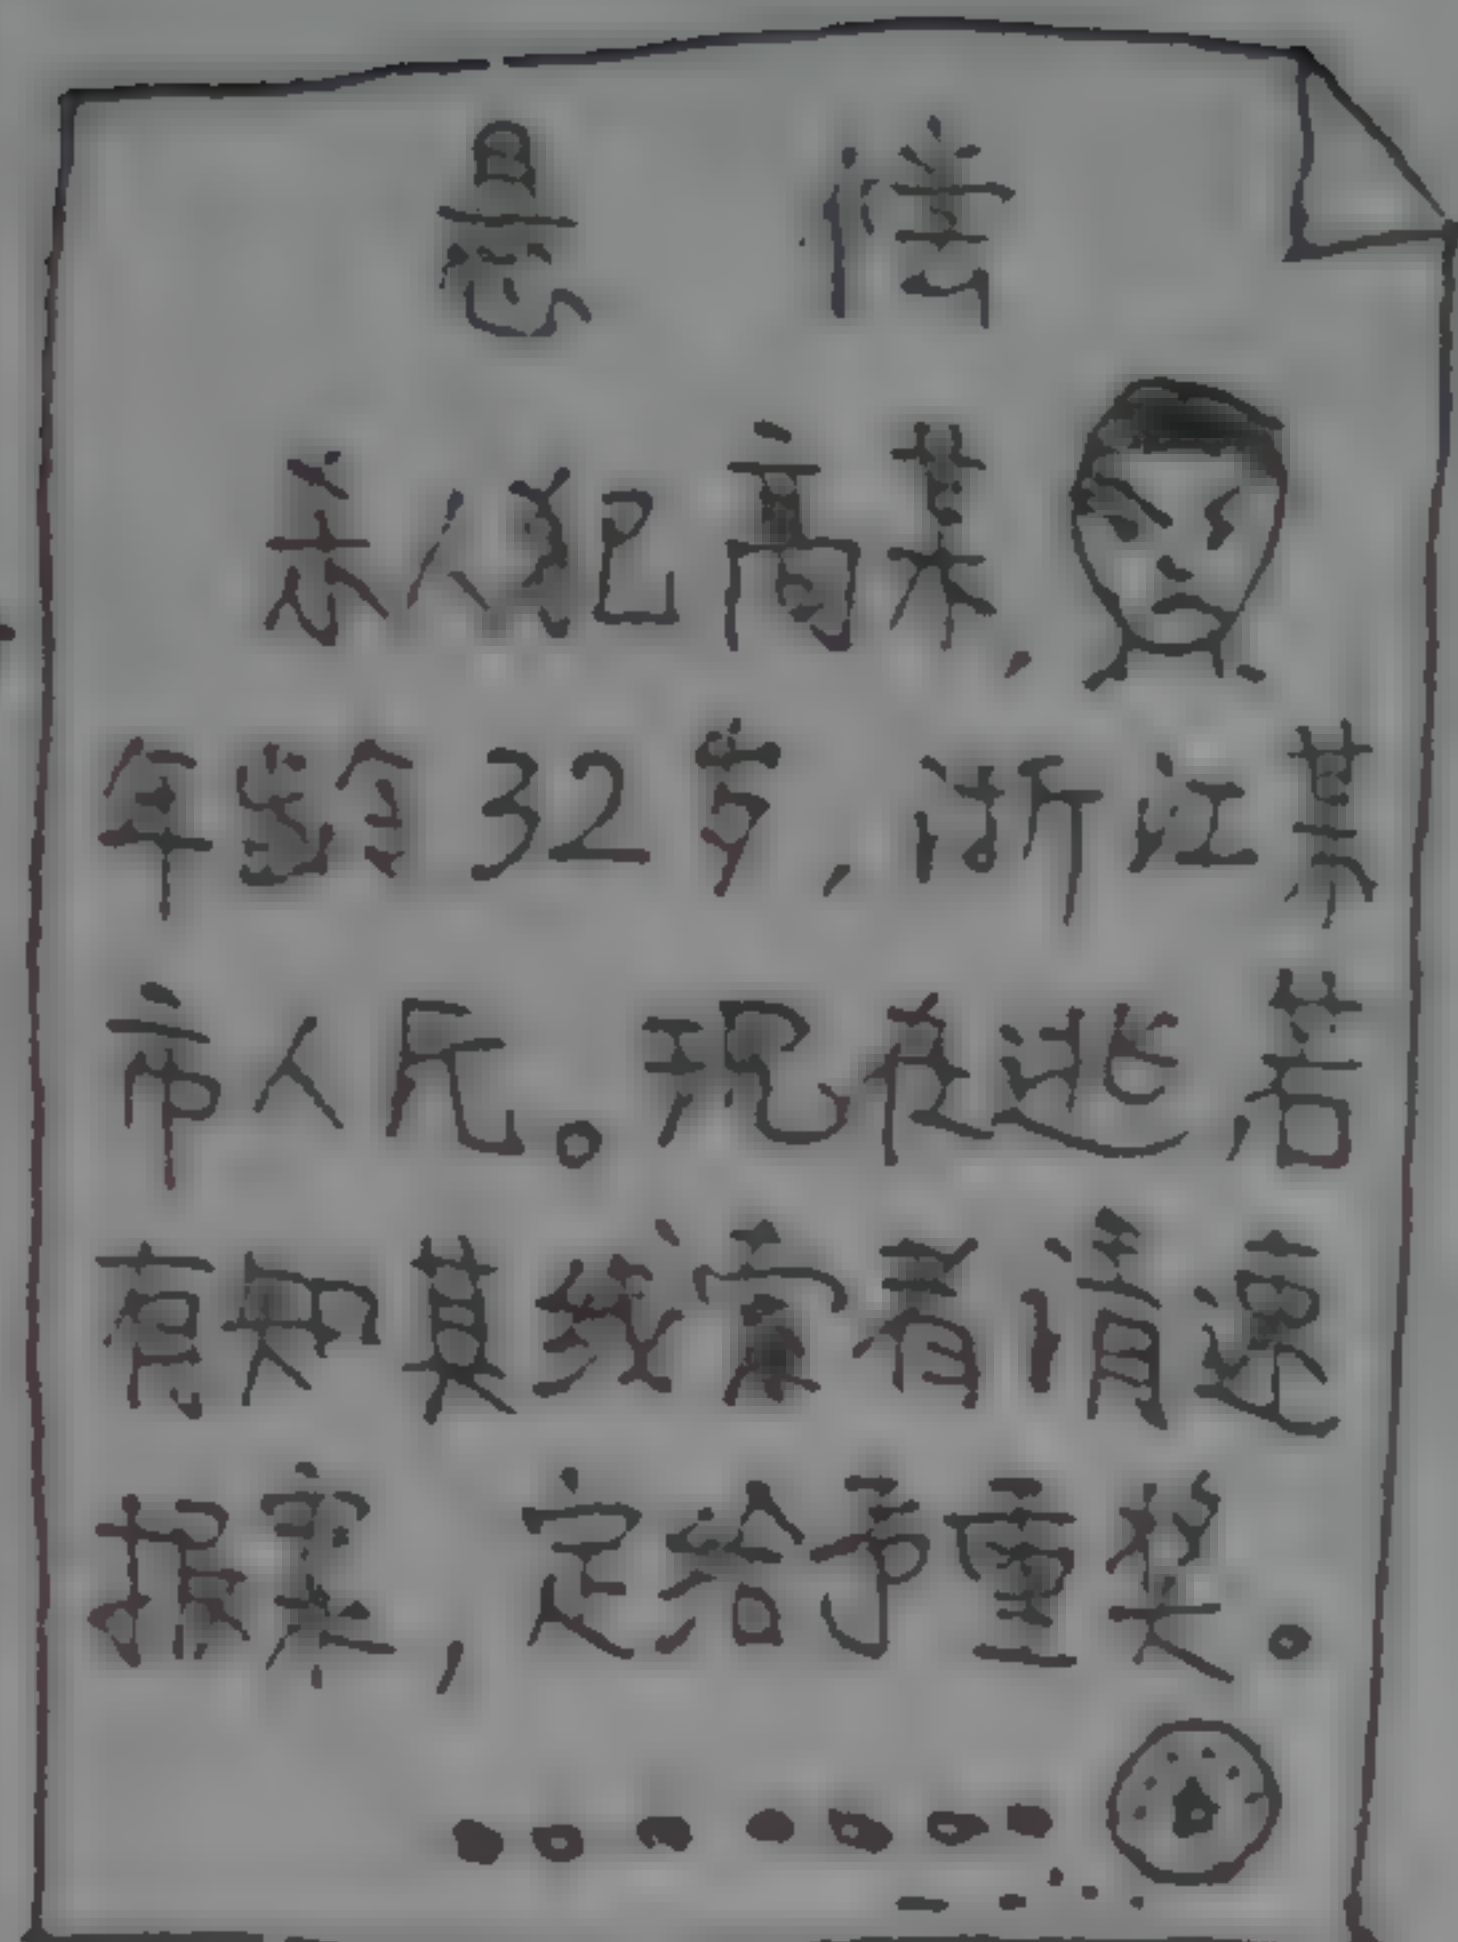 悬 情
杀人犯高某,
年龄32岁,浙江某
市人氏。现在逃,若
有知其线索者请速
报案,定给予重奖。